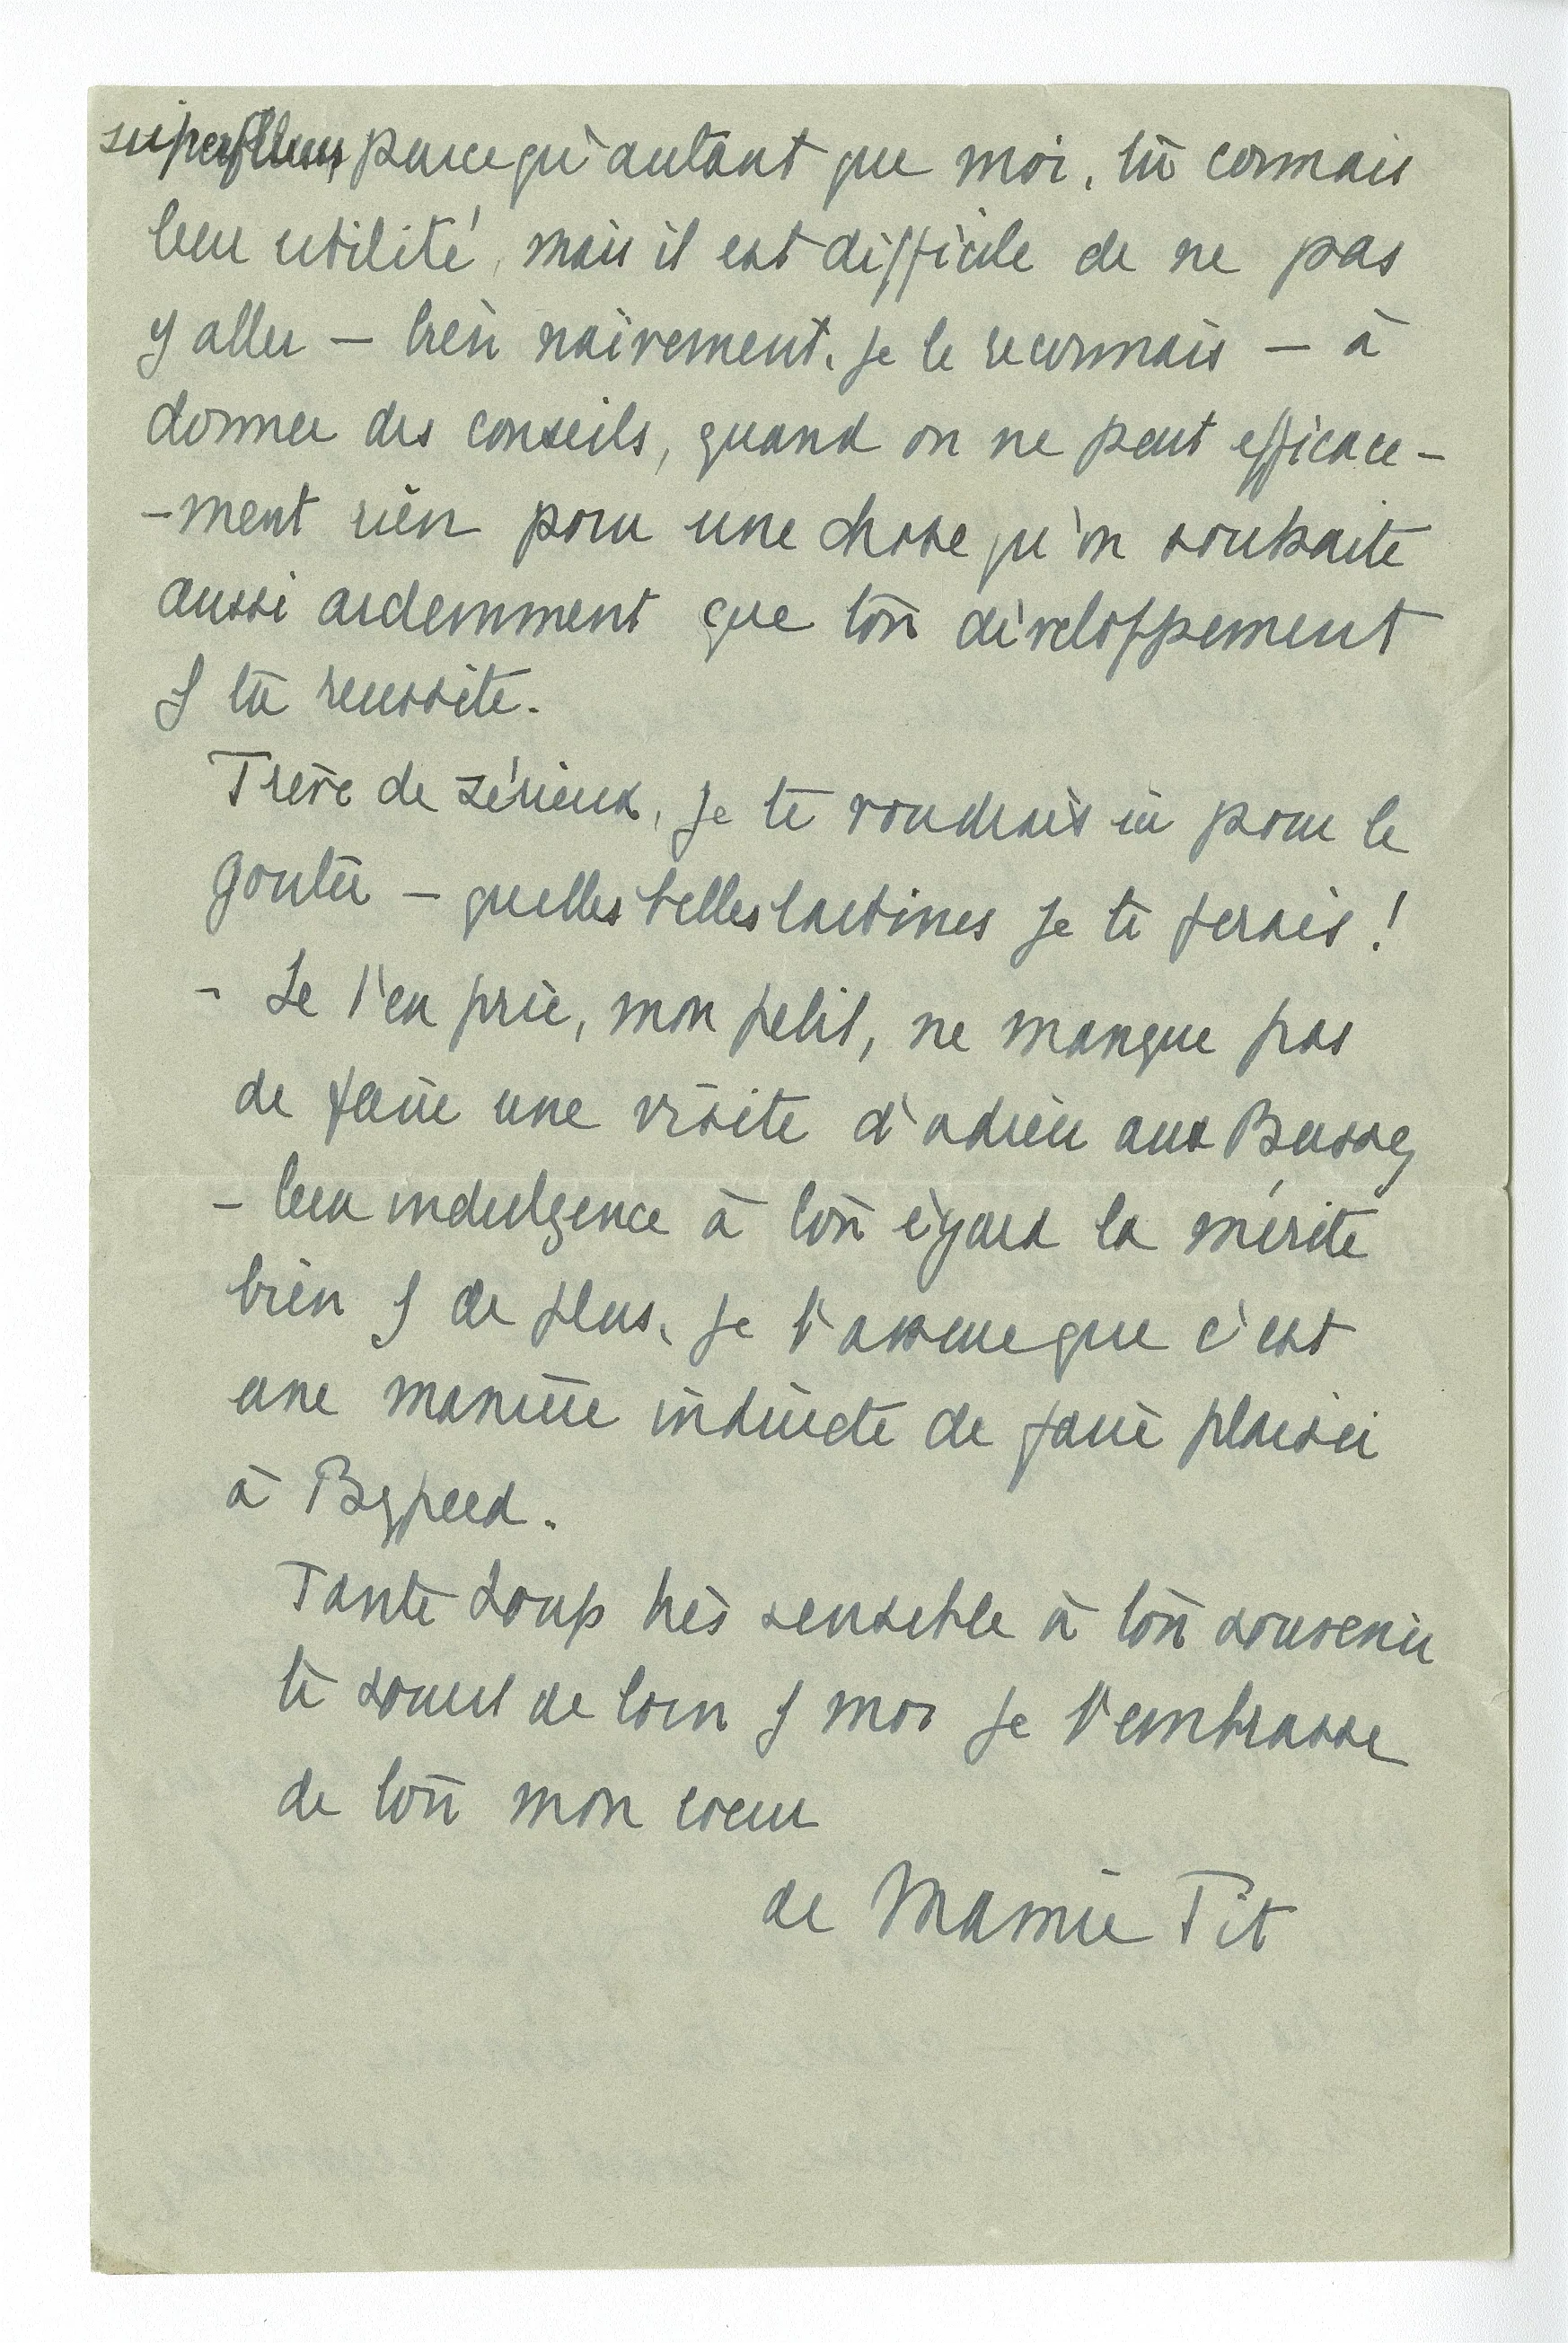 superflus, parcequ'autant que moi, tu connais
leur utilité, mais il est difficile de ne pas
y aller — bien naïvement, je le reconnais — à
donner des conseils, quand on ne peut efficace-
-ment rien pour une chose qu'on souhaite
aussi ardemment que ton développement
& ta reussite.
Trève de sérieux, je te voudrais ici pour le
gouter — quelles belles tartines je te ferais !
- Je t'en prie, mon petit, ne manque pas
de faire une visite d'adieu aux
- leur indulgence à ton égard la mérite
bien & de plus, je t'assure que c'est
une manière indirecte de faire plaisir
à
Tante Loup très sensible à ton souvenir
te sourit de loin & moi je t'embrasse
de tout mon coeur
de Mamie Tit